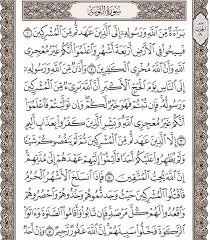 سُورَةُ التَّوْبَةِ
بَرَآءَةٌ مِّنَ ٱللَّهِ وَرَسُولِهِۦٓ إِلَى ٱلَّذِينَ عَٰهَدتُّم مِّنَ ٱلْمُشْرِكِينَ ١
فَسِيحُوا۟ فِى ٱلْأَرْضِ أَرْبَعَةَ أَشْهُرٍ وَٱعْلَمُوٓا۟ أَنَّكُمْ غَيْرُ مُعْجِزِى
ٱللَّهِ وَأَنَّ ٱللَّهَ مُخْزِى ٱلْكَٰفِرِينَ ٢ وَأَذَٰنٌ مِّنَ ٱللَّهِ وَرَسُولِهِۦٓ
إِلَى ٱلنَّاسِ يَوْمَ ٱلْحَجِّ ٱلْأَكْبَرِ أَنَّ ٱللَّهَ بَرِىٓءٌ مِّنَ ٱلْمُشْرِكِينَ
وَرَسُولُهُۥ فَإِن تُبْتُمْ فَهُوَ خَيْرٌ لَّكُمْ وَإِن تَوَلَّيْتُمْ فَٱعْلَمُوٓا۟
أَنَّكُمْ غَيْرُ مُعْجِزِى ٱللَّهِ وَبَشِّرِ ٱلَّذِينَ كَفَرُوا۟ بِعَذَابٍ أَلِيمٍ ٣
إِلَّا ٱلَّذِينَ عَٰهَدتُّم مِّنَ ٱلْمُشْرِكِينَ ثُمَّ لَمْ يَنقُصُوكُمْ شَيْـًٔا
وَلَمْ يُظَٰهِرُوا۟ عَلَيْكُمْ أَحَدًا فَأَتِمُّوٓا۟ إِلَيْهِمْ عَهْدَهُمْ إِلَىٰ مُدَّتِهِمْ
إِنَّ ٱللَّهَ يُحِبُّ ٱلْمُتَّقِينَ ٤ فَإِذَا ٱنسَلَخَ ٱلْأَشْهُرُ ٱلْحُرُمُ
فَٱقْتُلُوا۟ ٱلْمُشْرِكِينَ حَيْثُ وَجَدتُّمُوهُمْ وَخُذُوهُمْ وَٱحْصُرُوهُمْ
وَٱقْعُدُوا۟ لَهُمْ كُلَّ مَرْصَدٍ فَإِن تَابُوا۟ وَأَقَامُوا۟ ٱلصَّلَوٰةَ وَءَاتَوُا۟